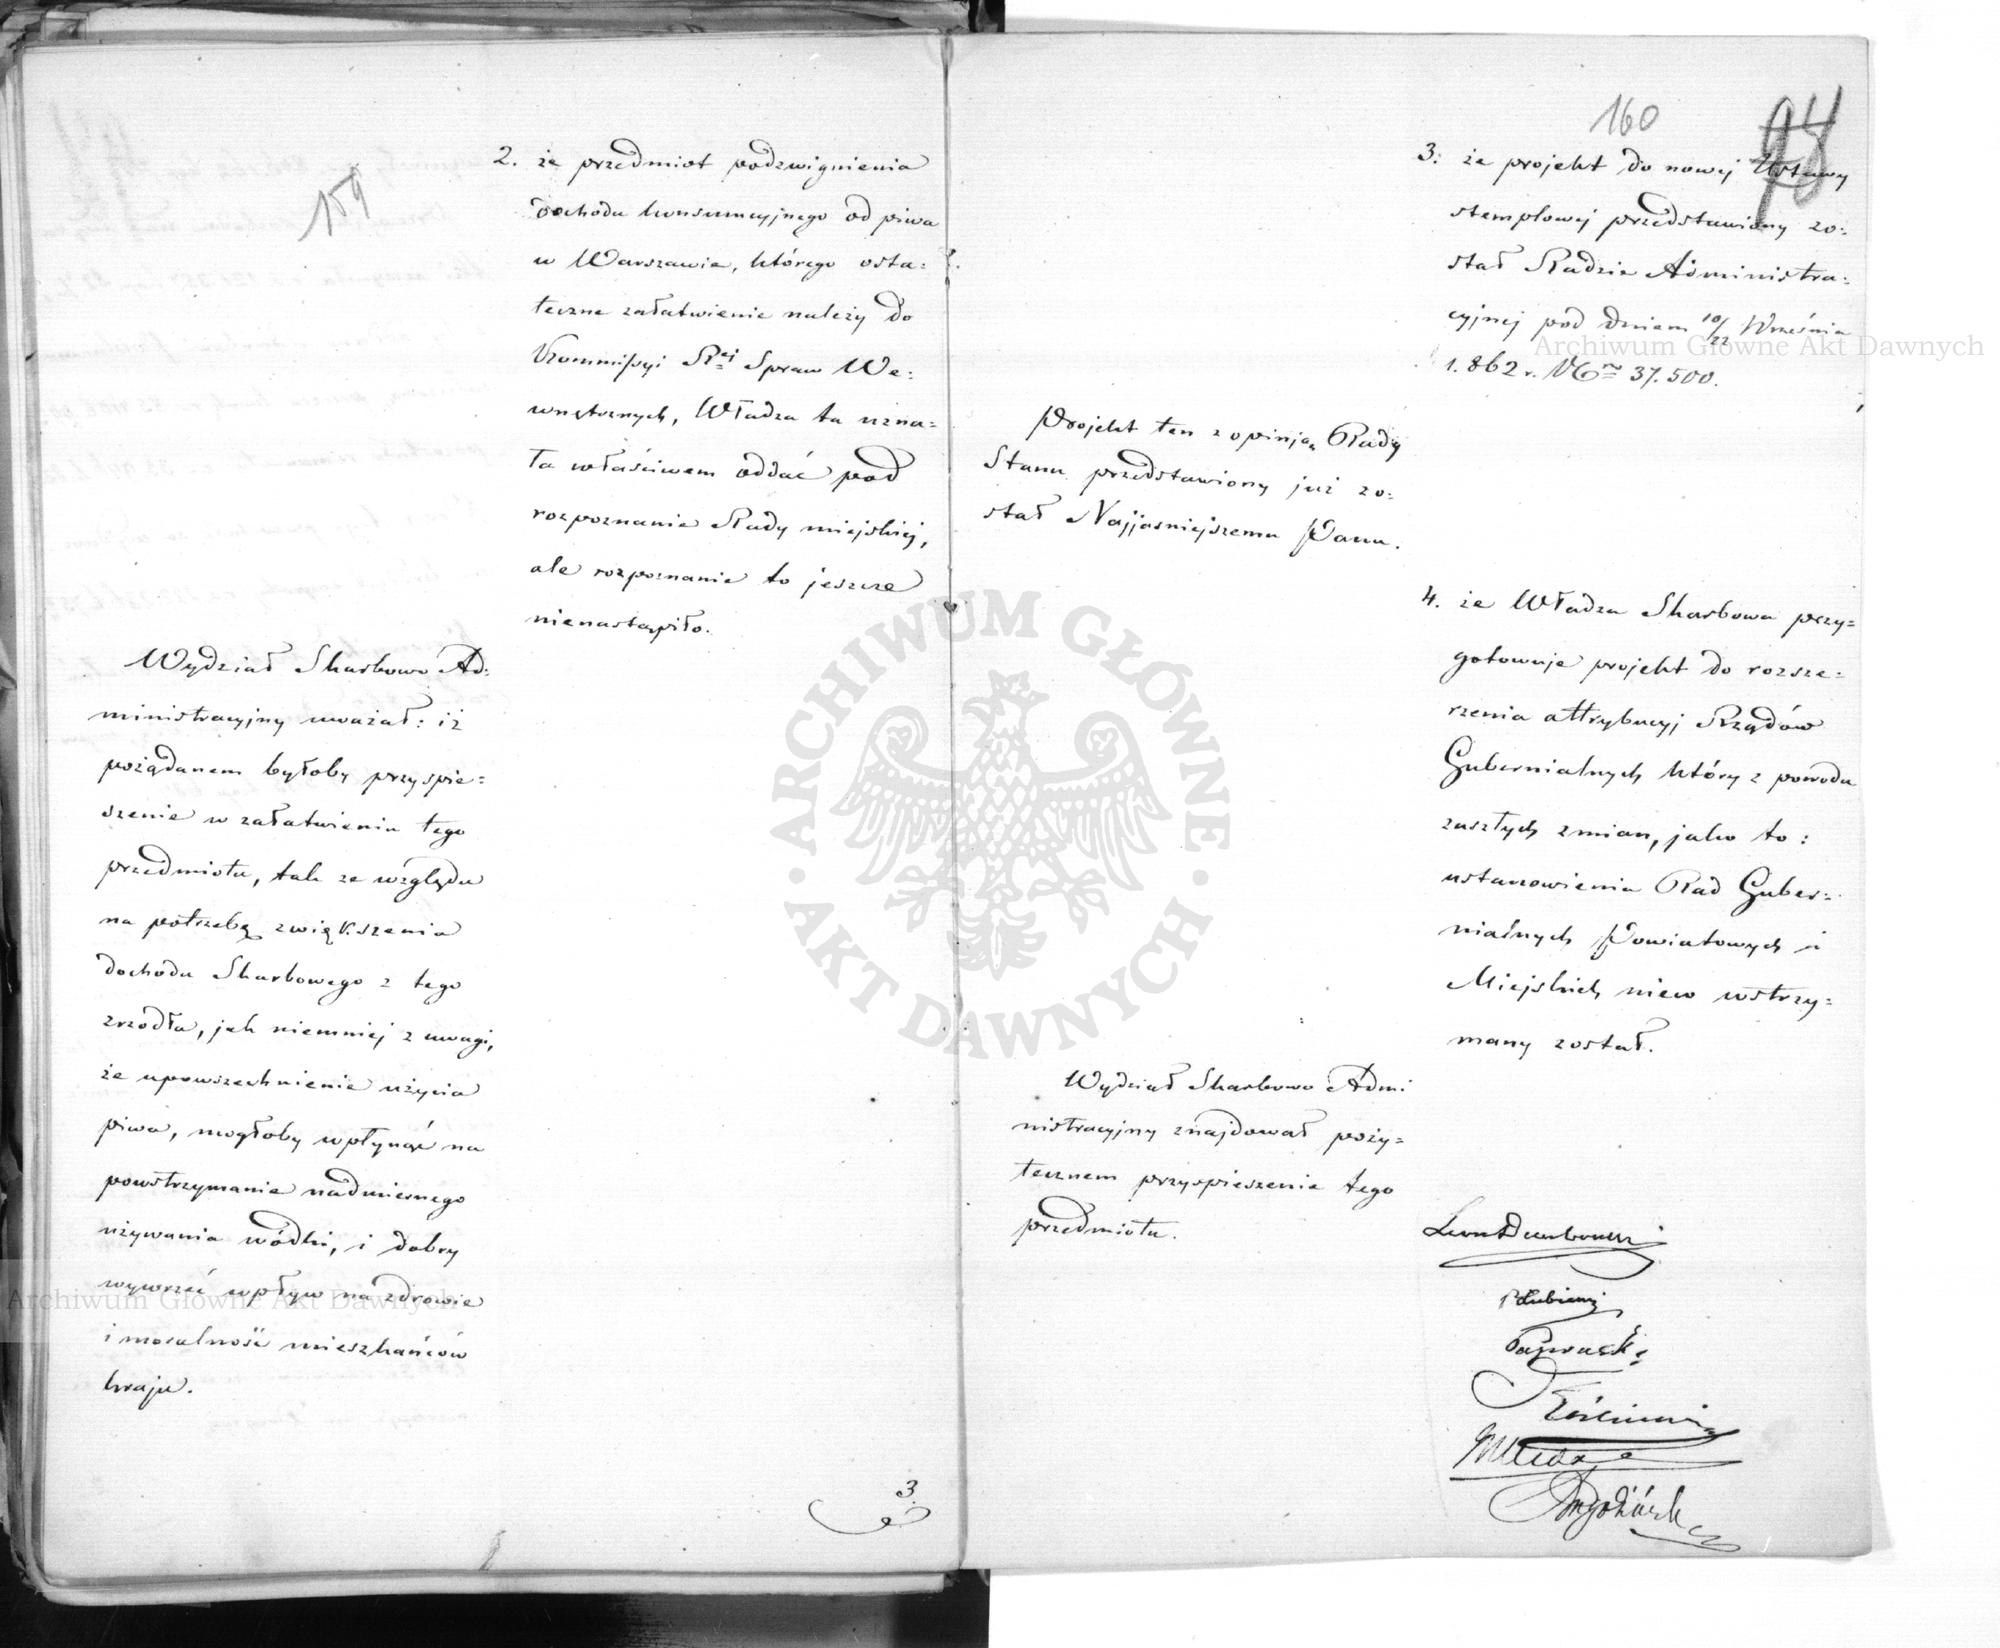 159
2. że przedmiot podzwignienia
dochodu konsumcyjnego od piwa
w Warszawie, którego osta=
teczne załatwienie należy do
Kommissyi R.ei Spraw We=
wnętrznych, Władza ta uzna=
ła właściwem oddać pod
rozpoznanie Rady miejskiej,
ale rozpoznanie to jeszcze
nienastąpiło.
Wydział Skarbowo Ad=
ministracyjny uważał: iż
pożądanem byłoby przyspie=
szenie w załatwieniu tego
przedmiotu, tak ze względu
na potrzebę zwiększenia
dochodu Skarbowego z tego
zrzódła, jak niemniej z uwagi,
że upowszechnienie użycia
piwa, mogłoby wpłynąć na
powstrzymanie nadmiernego
używania wódki, i dobry
wywrzeć wpływ na zdrowie
i moralność mieszkańców
kraju.
3.
160
98
3. że projekt do nowej Ustawy
stemplowej przedstawiony zo=
stał Radzie Administra=
cyjnej pod dniem 10/22 Września
1.862 r. N° 37.500.
Projekt ten z opinją Rady
Stanu przedstawiony już zo=
stał Najjaśniejszemu Panu.
4. że Władza Skarbowa przy=
gotowuje projekt do rozsze=
rzenia attrybucyj Rządów
Gubernialnych który z powodu
zaszłych zmian, jako to:
ustanowienia Rad Guber=
nialnych Powiatowych i
Miejskich niew wstrzy=
many został.
Wydział Skarbowo Admi
nistracyjny znajdował poży=
tecznem przyspieszenie tego
przedmiotu.
Leon Dembowski
Łubieński
Archiwum Główne Akt Dawnych
Archiwum Główne Akt Dawnych
ARCHIWUM GŁÓWNE
AKT DAWNYCH